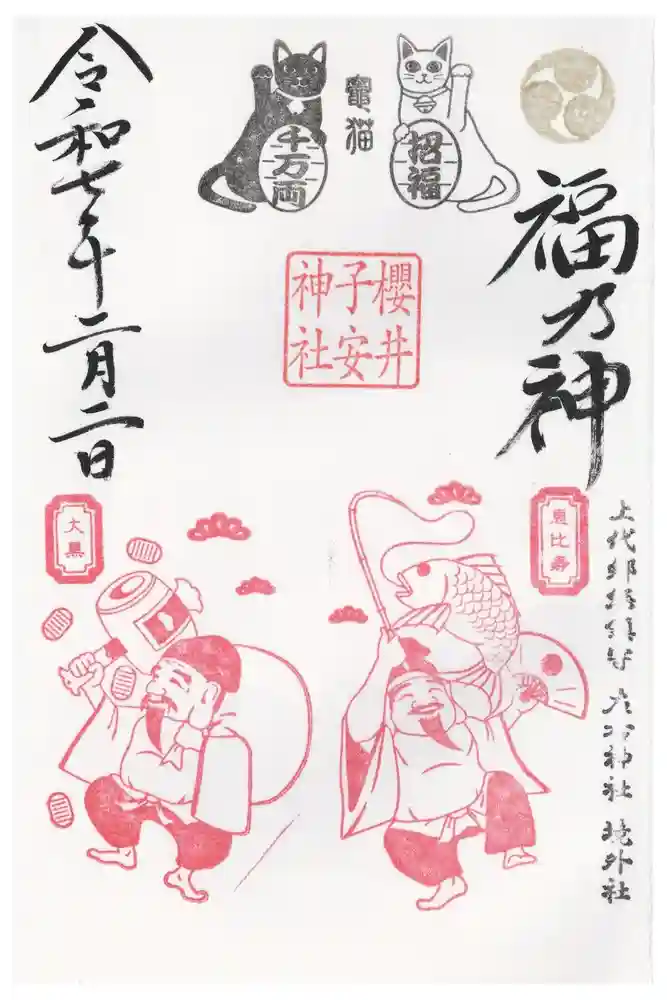 福乃神
上代 神社 境外社
招福
竈猫
千万両
櫻井
子安
神社
恵比寿
大黒
令和七年二月二日